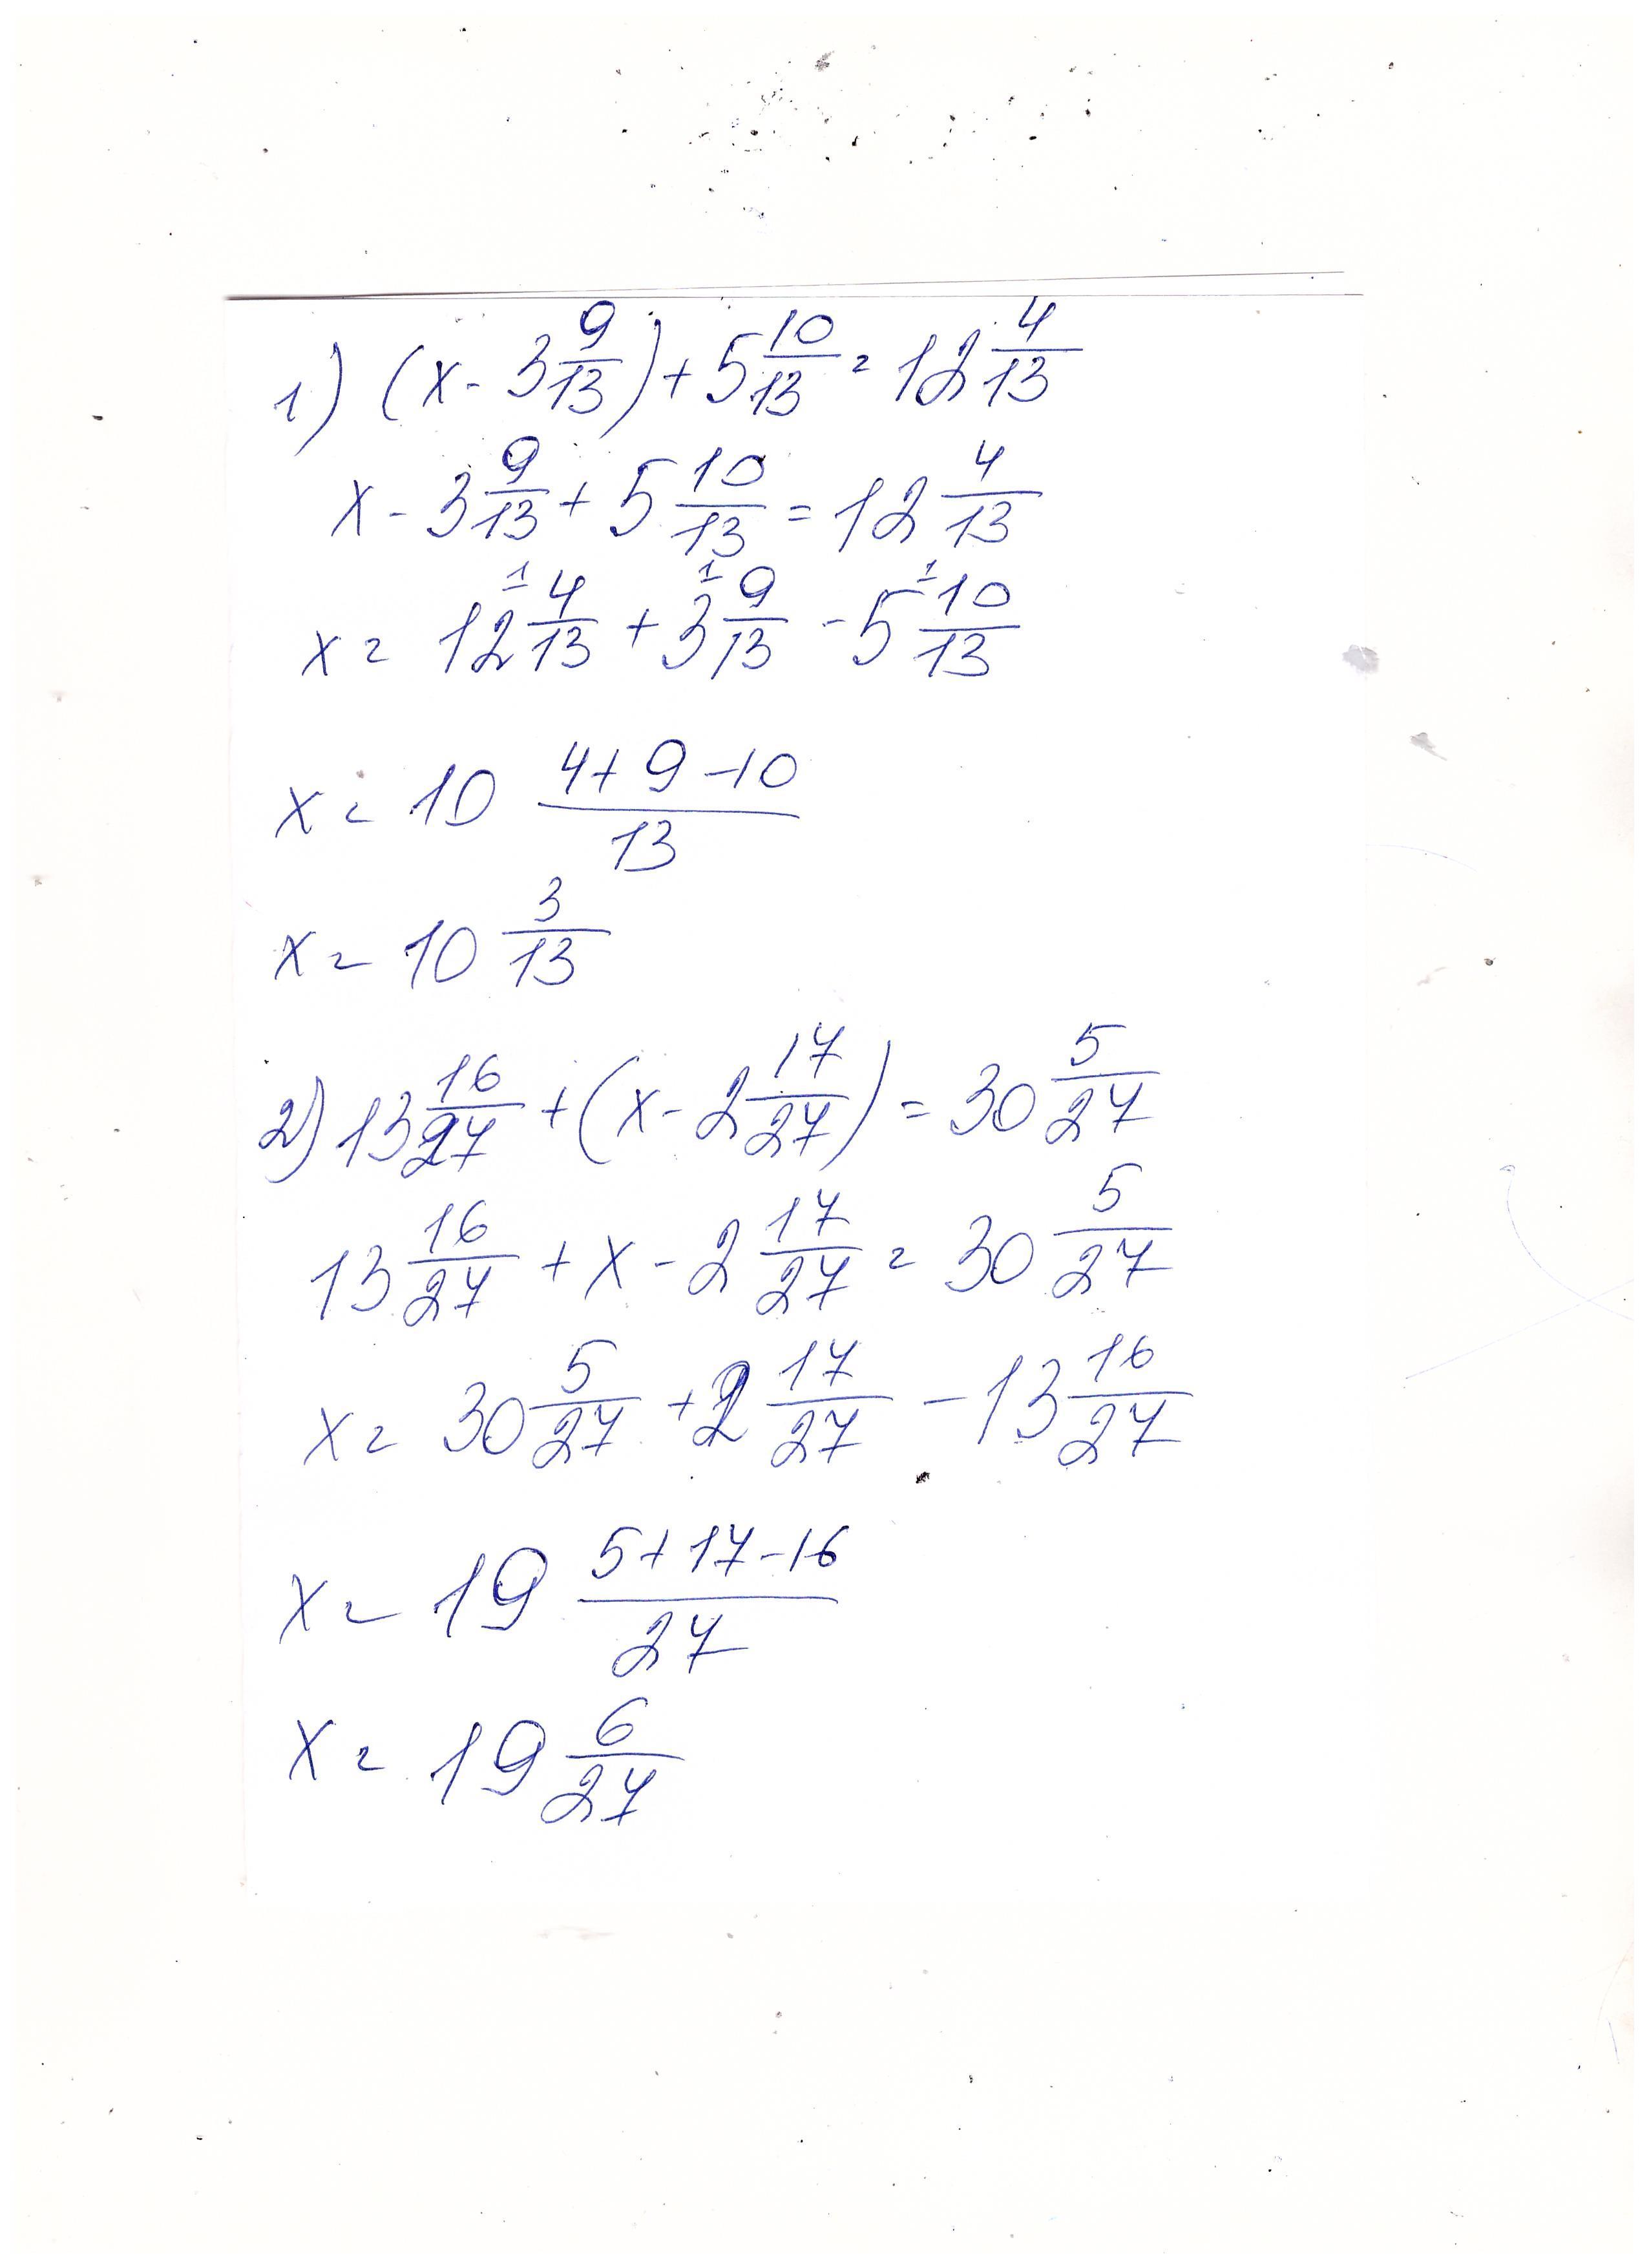 1) (x - 3 9/13) + 5 10/13 = 12 4/13
x - 3 9/13 + 5 10/13 = 12 4/13
x = 12 4/13 + 3 9/13 - 5 10/13
x = 10 (4 + 9 - 10)/13
x = 10 3/13
2) 13 16/27 + (x - 2 17/27) = 30 5/27
13 16/27 + x - 2 17/27 = 30 5/27
x = 30 5/27 + 2 17/27 - 13 16/27
x = 19 (5 + 17 - 16)/27
x = 19 6/27